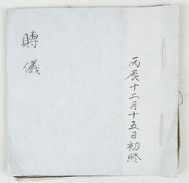 丙辰十二月十五日初終
賻儀